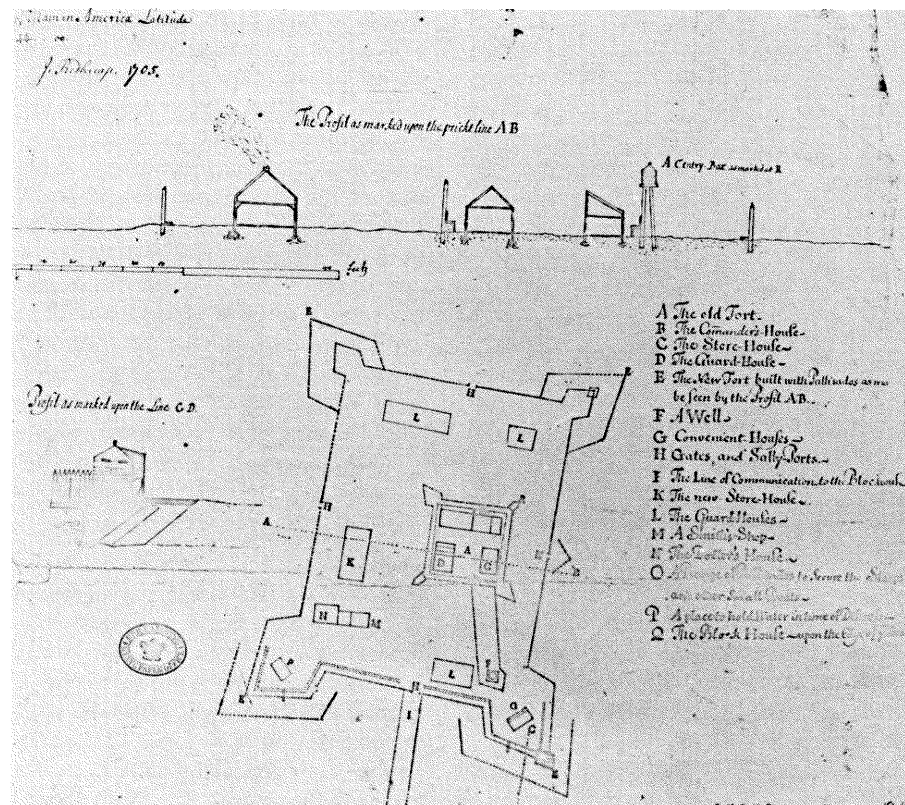 in America Latitude
1705.
The Profil as marked upon the prickt line A B
A Centry Box as marked at R
feet
A The old Fort
B The Comanders House
C The Store House
D The Guard House
E The New Fort built with Pallisados as may
be seen by the Profil AB
F A Well
G Convenient Houses
H Gates, and Sally Ports
I The Line of Communication to the Blockhouse
K The new Store House
L The Guard Houses
M A Smith's Shop
N House
O to Secure the
and other Small Boats
P A place to hold Water in time of
Q The Block House upon the
Profil as marked upon the Line C D
E
E
H
L
L
H
A
A
D
C
B
K
N
M
P
L
H
I
G
C
E
E